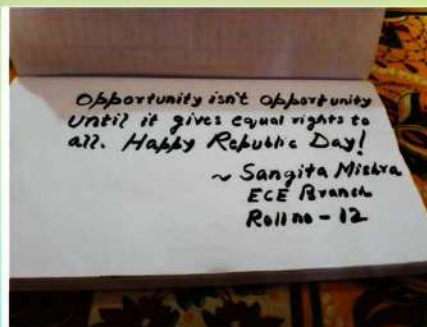 Opportunity isn't opportunity
until it gives equal rights to
all. Happy Republic Day!
~ Sangita Mishra
ECE Branch
Roll no - 12